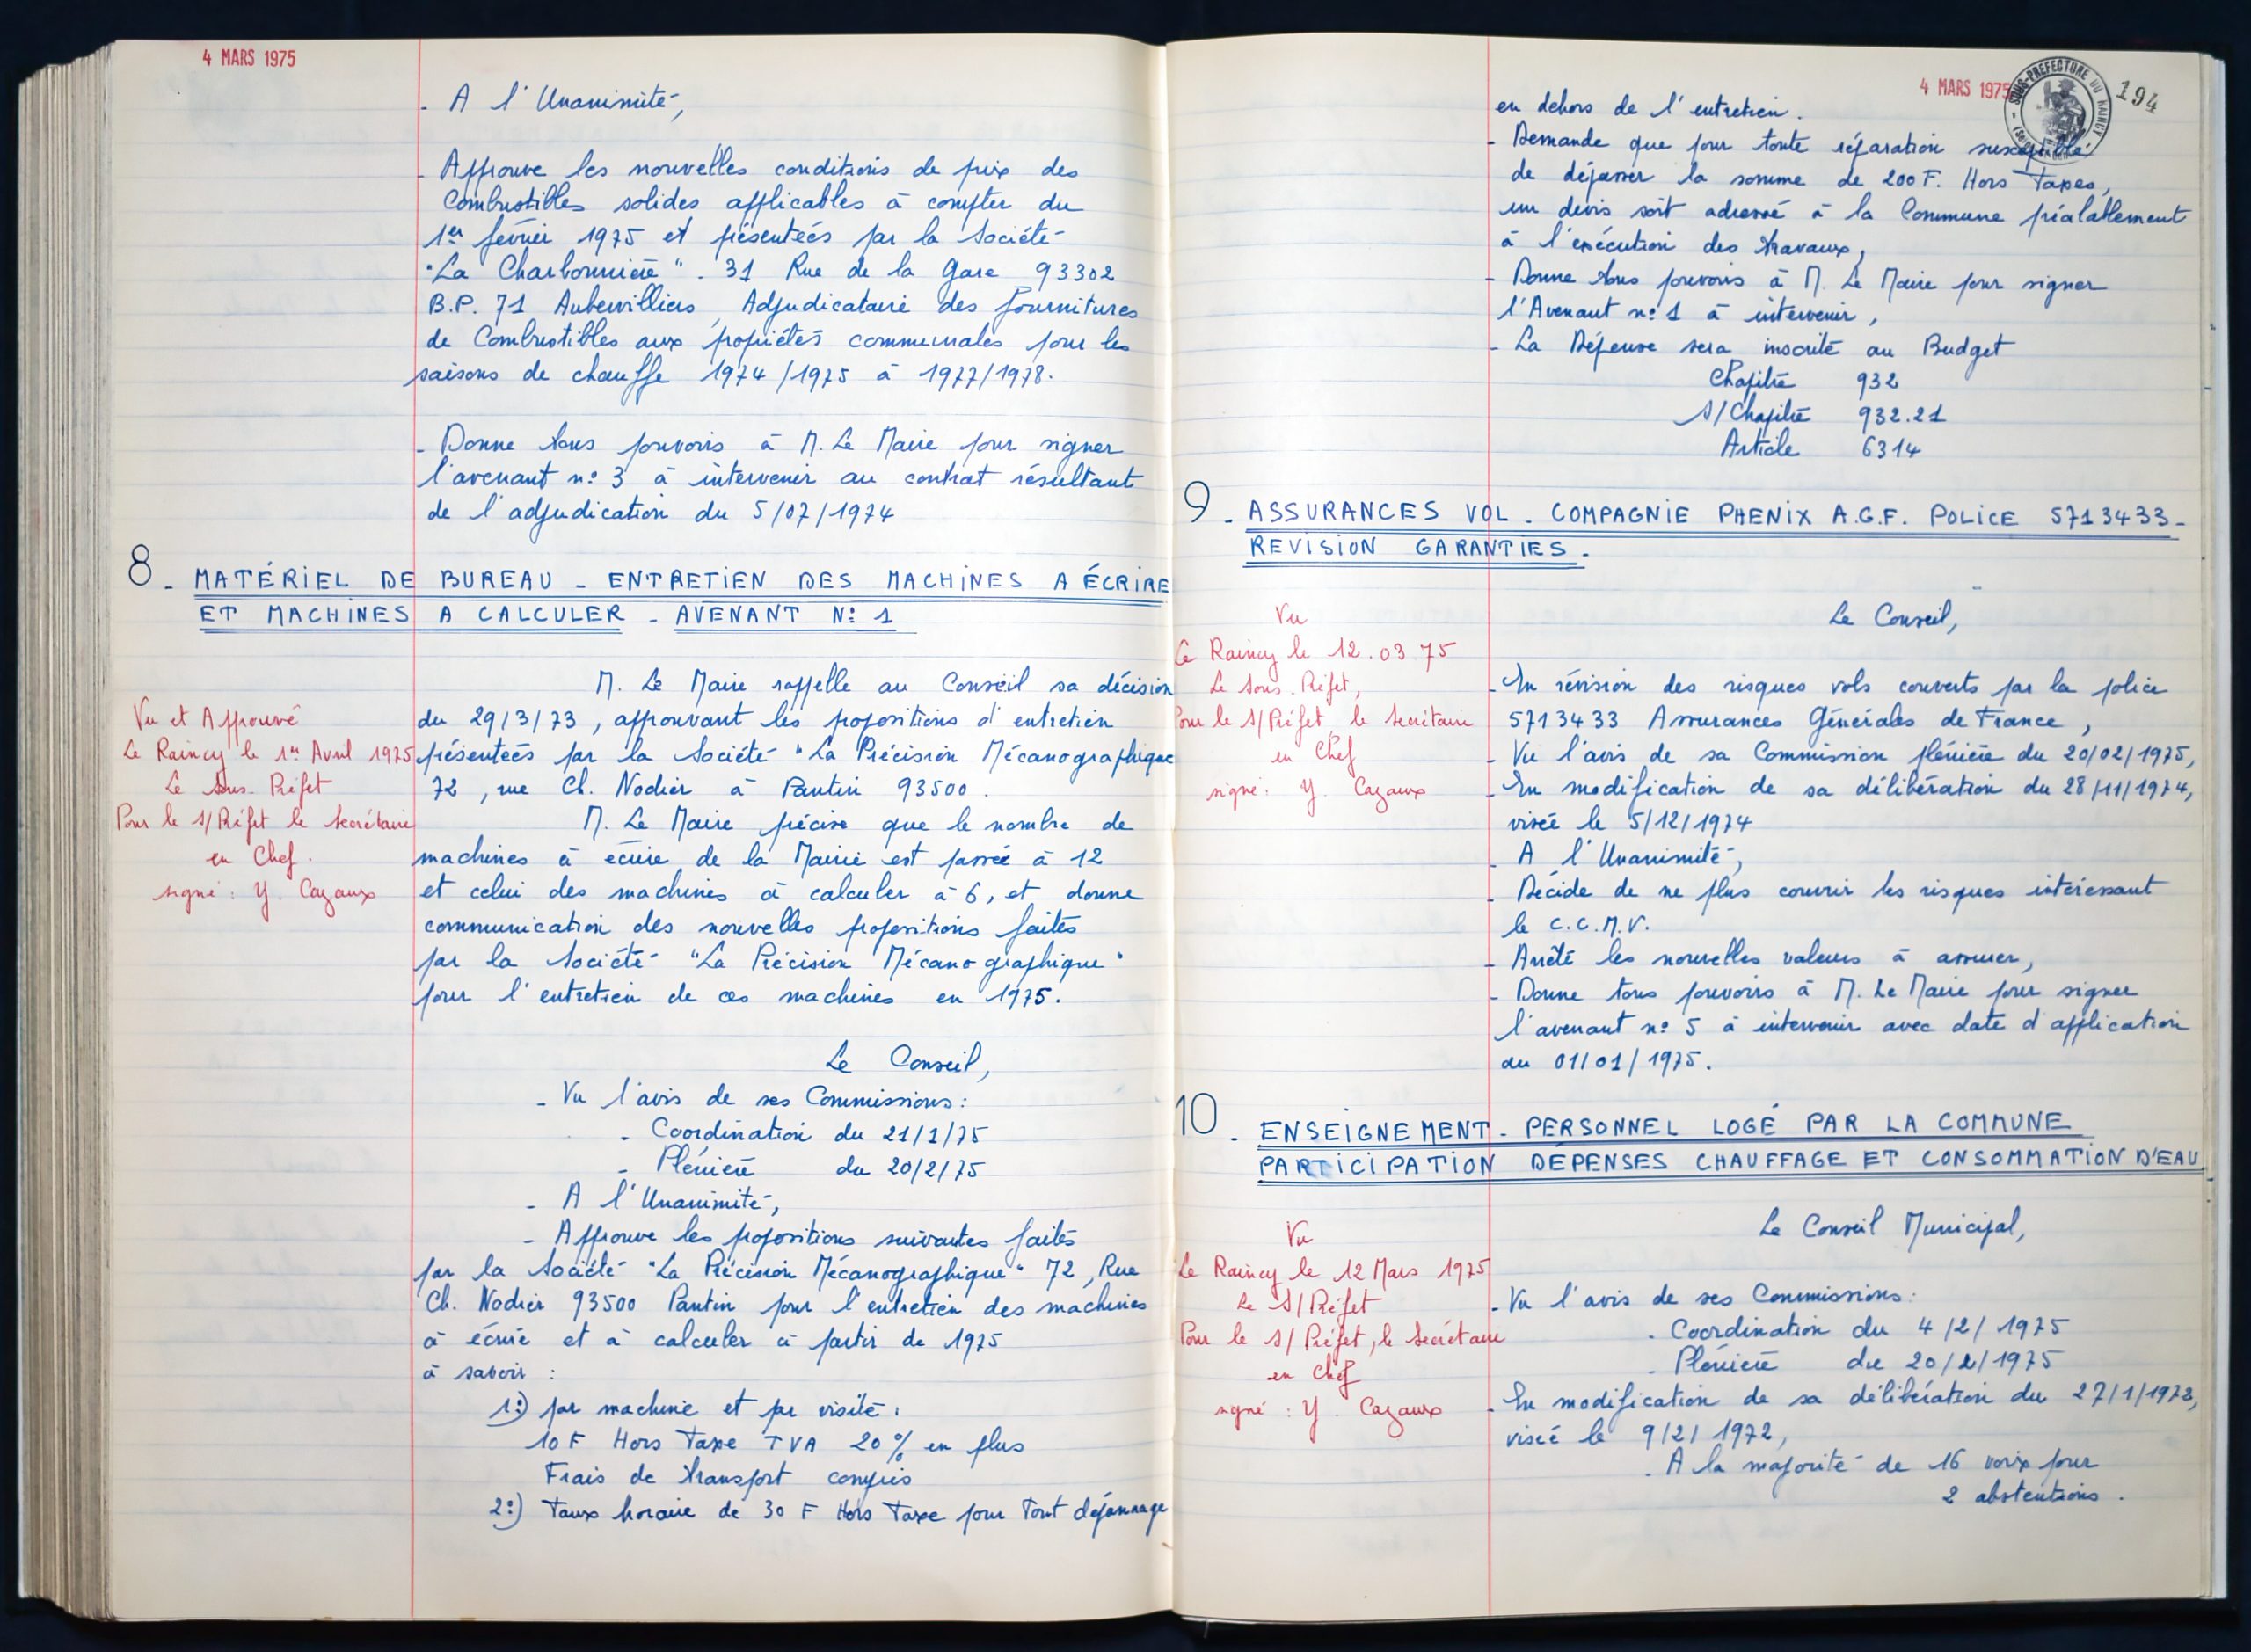 4 MARS 1975
- A l'Unanimité,
- Approuve les nouvelles conditions de prix des
Combustibles solides applicables à compter du
1er février 1975 et présentées par la Société
"La Charbonnière". 31 Rue de la Gare 93302
B.P. 71 Aubervilliers, Adjudicataire des fournitures
de Combustibles aux propriétés communales pour les
saisons de chauffe 1974/1975 à 1977/1978.
- Donne tous pouvoirs à M. Le Maire pour signer
l'avenant n° 3 à intervenir au contrat résultant
de l'adjudication du 5/07/1974
8 - MATÉRIEL DE BUREAU - ENTRETIEN DES MACHINES A ÉCRIRE
ET MACHINES A CALCULER - AVENANT N° 1
Vu et Approuvé
Le Raincy le 1er Avril 1975
Le Sous-Préfet
Pour le S/Préfet le Secrétaire
en Chef.
signé : Y. Cazaux
M. Le Maire rappelle au Conseil sa décision
du 29/3/73, approuvant les propositions d'entretien
présentées par la Société "La Précision Mécanographique
72, rue Ch. Nodier à Pantin 93500.
M. Le Maire précise que le nombre de
machines à écrire de la Mairie est passée à 12
et celui des machines à calculer à 6, et donne
communication des nouvelles propositions faites
par la Société "La Précision Mécanographique"
pour l'entretien de ces machines en 1975.
Le Conseil,
- Vu l'avis de ses Commissions :
- Coordination du 21/1/75
- Plénière du 20/2/75
- A l'Unanimité,
- Approuve les propositions suivantes faites
par la Société "La Précision Mécanographique" 72, Rue
Ch. Nodier 93500 Pantin pour l'entretien des machines
à écrire et à calculer à partir de 1975
à savoir :
1°) par machine et par visite :
10 F Hors Taxe TVA 20 % en plus
Frais de transport compris
2°) Taux horaire de 30 F Hors Taxe pour Tout dépannage
4 MARS 1975
SOUS-PREFECTURE DU RAINCY
194
en dehors de l'entretien.
- Demande que pour toute réparation susceptible
de dépasser la somme de 200 F. Hors Taxes,
un devis soit adressé à la Commune préalablement
à l'exécution des travaux,
- Donne tous pouvoirs à M. Le Maire pour signer
l'Avenant n° 1 à intervenir,
- La Dépense sera inscrite au Budget
Chapitre 932
S/Chapitre 932.21
Article 6314
9 - ASSURANCES VOL - COMPAGNIE PHENIX A.G.F. POLICE 5713433 -
REVISION GARANTIES -
Vu
Le Raincy le 12.03.75
Le Sous-Préfet,
Pour le S/Préfet le Secrétaire
en Chef
signé : Y. Cazaux
Le Conseil,
- En révision des risques vols couverts par la police
5713433 Assurances Générales de France,
- Vu l'avis de sa Commission plénière du 20/02/1975,
- En modification de sa délibération du 28/11/1974,
visée le 5/12/1974
- A l'Unanimité,
- Décide de ne plus couvrir les risques intéressant
le C.C.M.V.
- Arrête les nouvelles valeurs à assurer,
- Donne tous pouvoirs à M. Le Maire pour signer
l'avenant n° 5 à intervenir avec date d'application
du 01/01/1975.
10 - ENSEIGNEMENT - PERSONNEL LOGÉ PAR LA COMMUNE
PARTICIPATION DÉPENSES CHAUFFAGE ET CONSOMMATION D'EAU
Vu
Le Raincy le 12 Mars 1975
Le S/Préfet
Pour le S/Préfet, le Secrétaire
en Chef
signé : Y. Cazaux
Le Conseil Municipal,
- Vu l'avis de ses Commissions :
- Coordination du 4/2/1975
- Plénière du 20/2/1975
- En modification de sa délibération du 27/1/1972,
visée le 9/2/1972,
- A la majorité de 16 voix pour
2 abstentions.